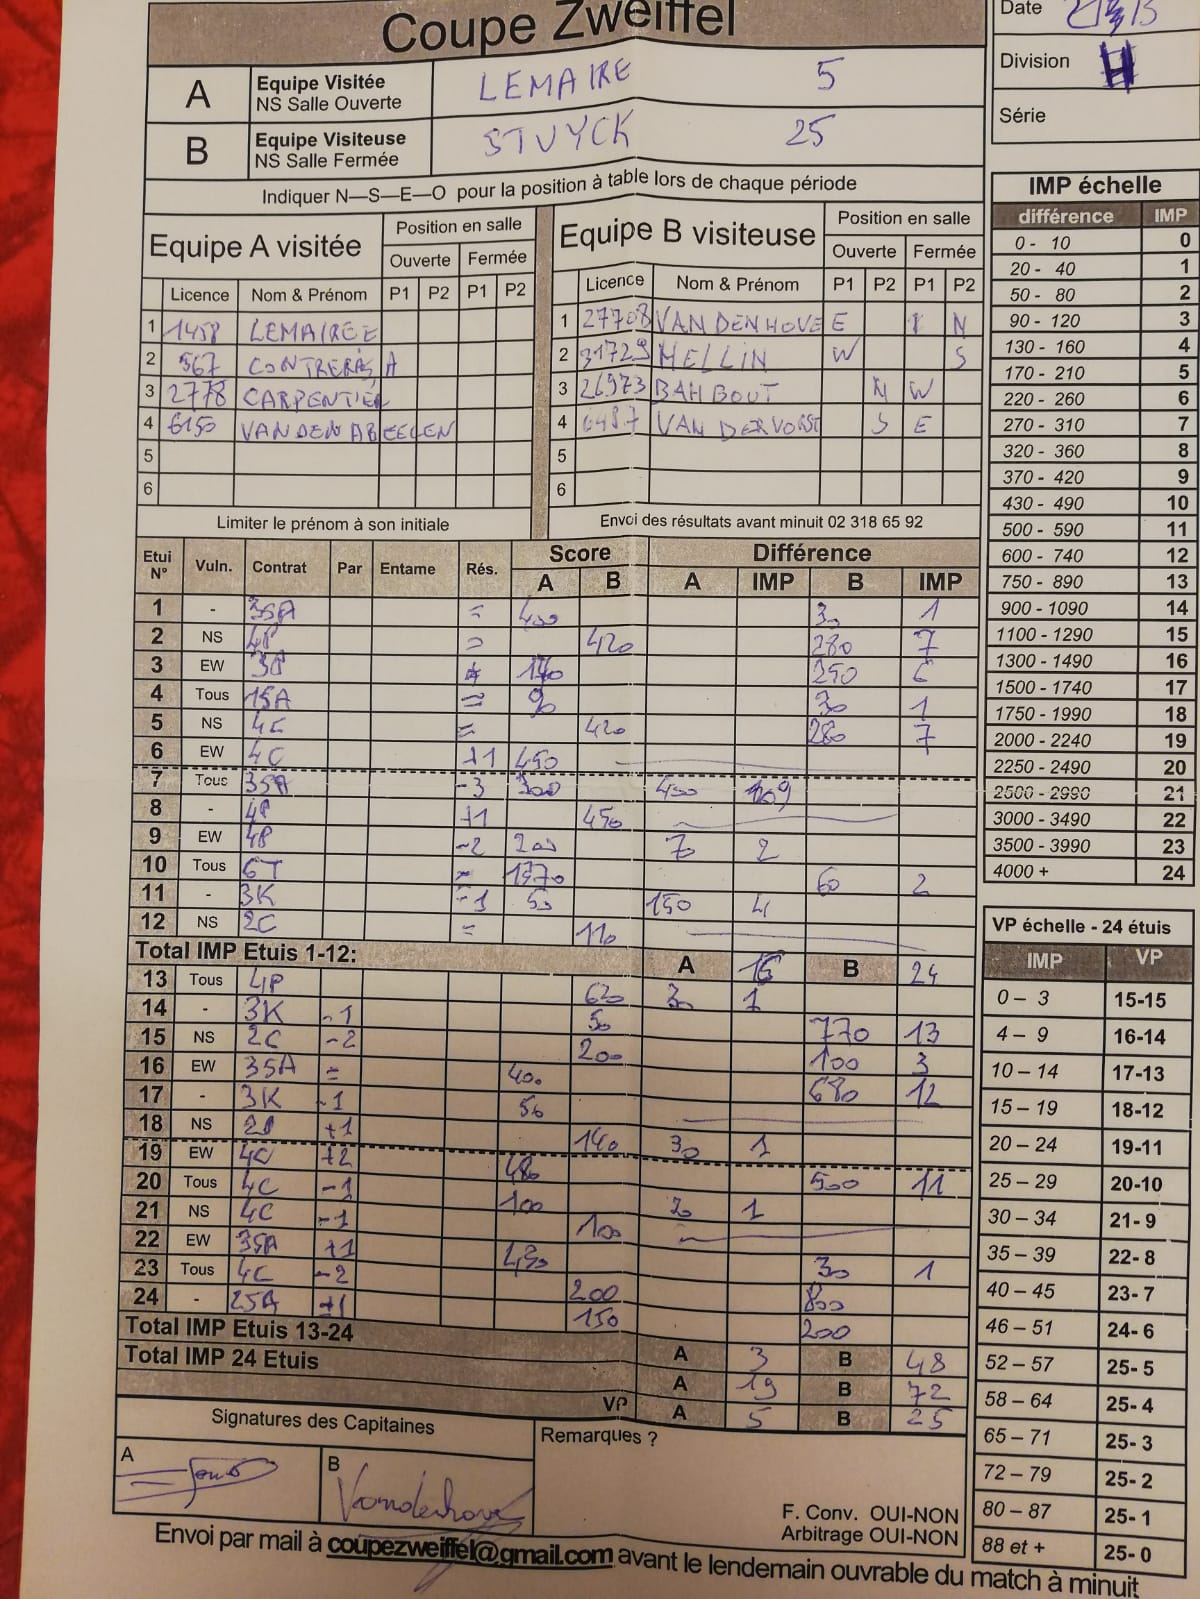 Coupe Zweiffel
Date
Division H
Série
A Equipe Visitée NS Salle Ouverte LEMAIRE 5
B Equipe Visiteuse NS Salle Fermée STUYCK 25
Indiquer N—S—E—O pour la position à table lors de chaque période
Equipe A visitée Position en salle
Ouverte Fermée
Licence Nom & Prénom P1 P2 P1 P2
1 1458 LEMAIRE E
2 567 CONTRERAS A
3 2778 CARPENTIER
4 6150 VANDENABEELEN
5
6
Limiter le prénom à son initiale
Equipe B visiteuse Position en salle
Ouverte Fermée
Licence Nom & Prénom P1 P2 P1 P2
1 27708 VANDENHOVE E N
2 31729 MELLIN W S
3 26973 BAHBOUT N W
4 6487 VAN DERVORST S E
5
6
Envoi des résultats avant minuit 02 318 65 92
Etui N° Vuln. Contrat Par Entame Rés. Score Différence
A B A IMP B IMP
1 - 3SA = 400 30 1
2 NS 4P = 420 280 7
3 EW 3P 140 250 6
4 Tous 1SA = 90 30 1
5 NS 4C = 420 280 7
6 EW 4C +1 450
7 Tous 3SA -3 300 400 9
8 - 4P +1 450
9 EW 4P -2 200 70 2
10 Tous 6T = 1370 60 2
11 - 3K -1 50 150 4
12 NS 2C = 110
Total IMP Etuis 1-12: A 16 B 24
13 Tous 4P 620 30 1
14 - 3K -1 50 770 13
15 NS 2C -2 200 100 3
16 EW 3SA = 400 680 12
17 - 3K -1 50
18 NS 2P +1 140 30 1
19 EW 4C +2 480
20 Tous 4C -1 100 500 11
21 NS 4C -1 100 20 1
22 EW 3SA +1 430
23 Tous 4C -2 200 30 1
24 - 2SA +1 150 800
200
Total IMP Etuis 13-24 A 3 B 48
Total IMP 24 Etuis A 19 B 72
VP A 5 B 25
Signatures des Capitaines
A
B Vandenhove
Remarques ?
F. Conv. OUI-NON
Arbitrage OUI-NON
Envoi par mail à coupezweiffel@gmail.com avant le lendemain ouvrable du match à minuit
IMP échelle
différence IMP
0 - 10 0
20 - 40 1
50 - 80 2
90 - 120 3
130 - 160 4
170 - 210 5
220 - 260 6
270 - 310 7
320 - 360 8
370 - 420 9
430 - 490 10
500 - 590 11
600 - 740 12
750 - 890 13
900 - 1090 14
1100 - 1290 15
1300 - 1490 16
1500 - 1740 17
1750 - 1990 18
2000 - 2240 19
2250 - 2490 20
2500 - 2990 21
3000 - 3490 22
3500 - 3990 23
4000 + 24
VP échelle - 24 étuis
IMP VP
0 – 3 15-15
4 – 9 16-14
10 – 14 17-13
15 – 19 18-12
20 – 24 19-11
25 – 29 20-10
30 – 34 21- 9
35 – 39 22- 8
40 – 45 23- 7
46 – 51 24- 6
52 – 57 25- 5
58 – 64 25- 4
65 – 71 25- 3
72 – 79 25- 2
80 – 87 25- 1
88 et + 25- 0